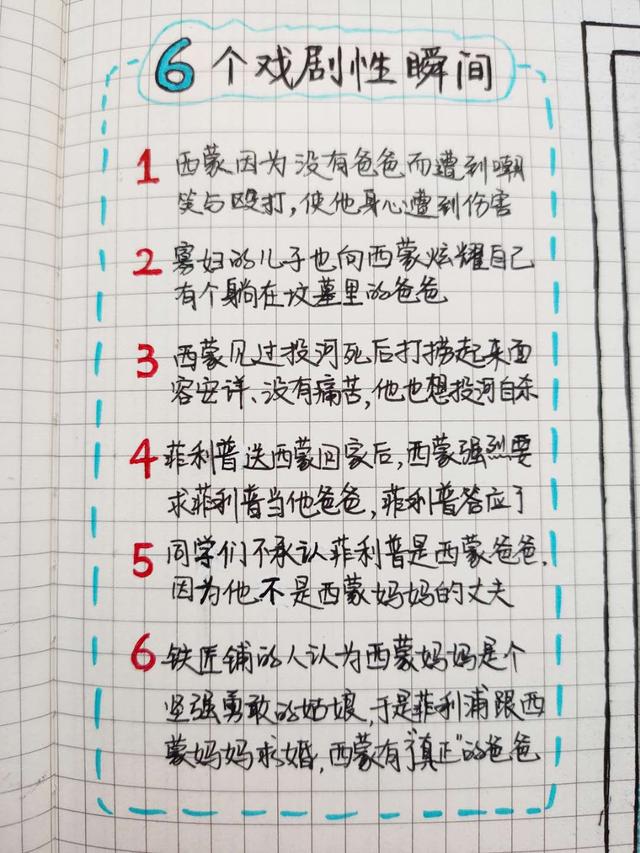 6个戏剧性瞬间
1 西蒙因为没有爸爸而遭到嘲
笑与殴打,使他身心遭到伤害
2 寡妇的儿子也向西蒙炫耀自己
有个躺在坟墓里的爸爸
3 西蒙见过投河死后打捞起来面
容安详、没有痛苦,他也想投河自杀
4 菲利普送西蒙回家后,西蒙强烈要
求菲利普当他爸爸,菲利普答应了
5 同学们不承认菲利普是西蒙爸爸,
因为他不是西蒙妈妈的丈夫
6 铁匠铺的人认为西蒙妈妈是个
坚强勇敢的姑娘,于是菲利浦跟西
蒙妈妈求婚,西蒙有了“真正”的爸爸